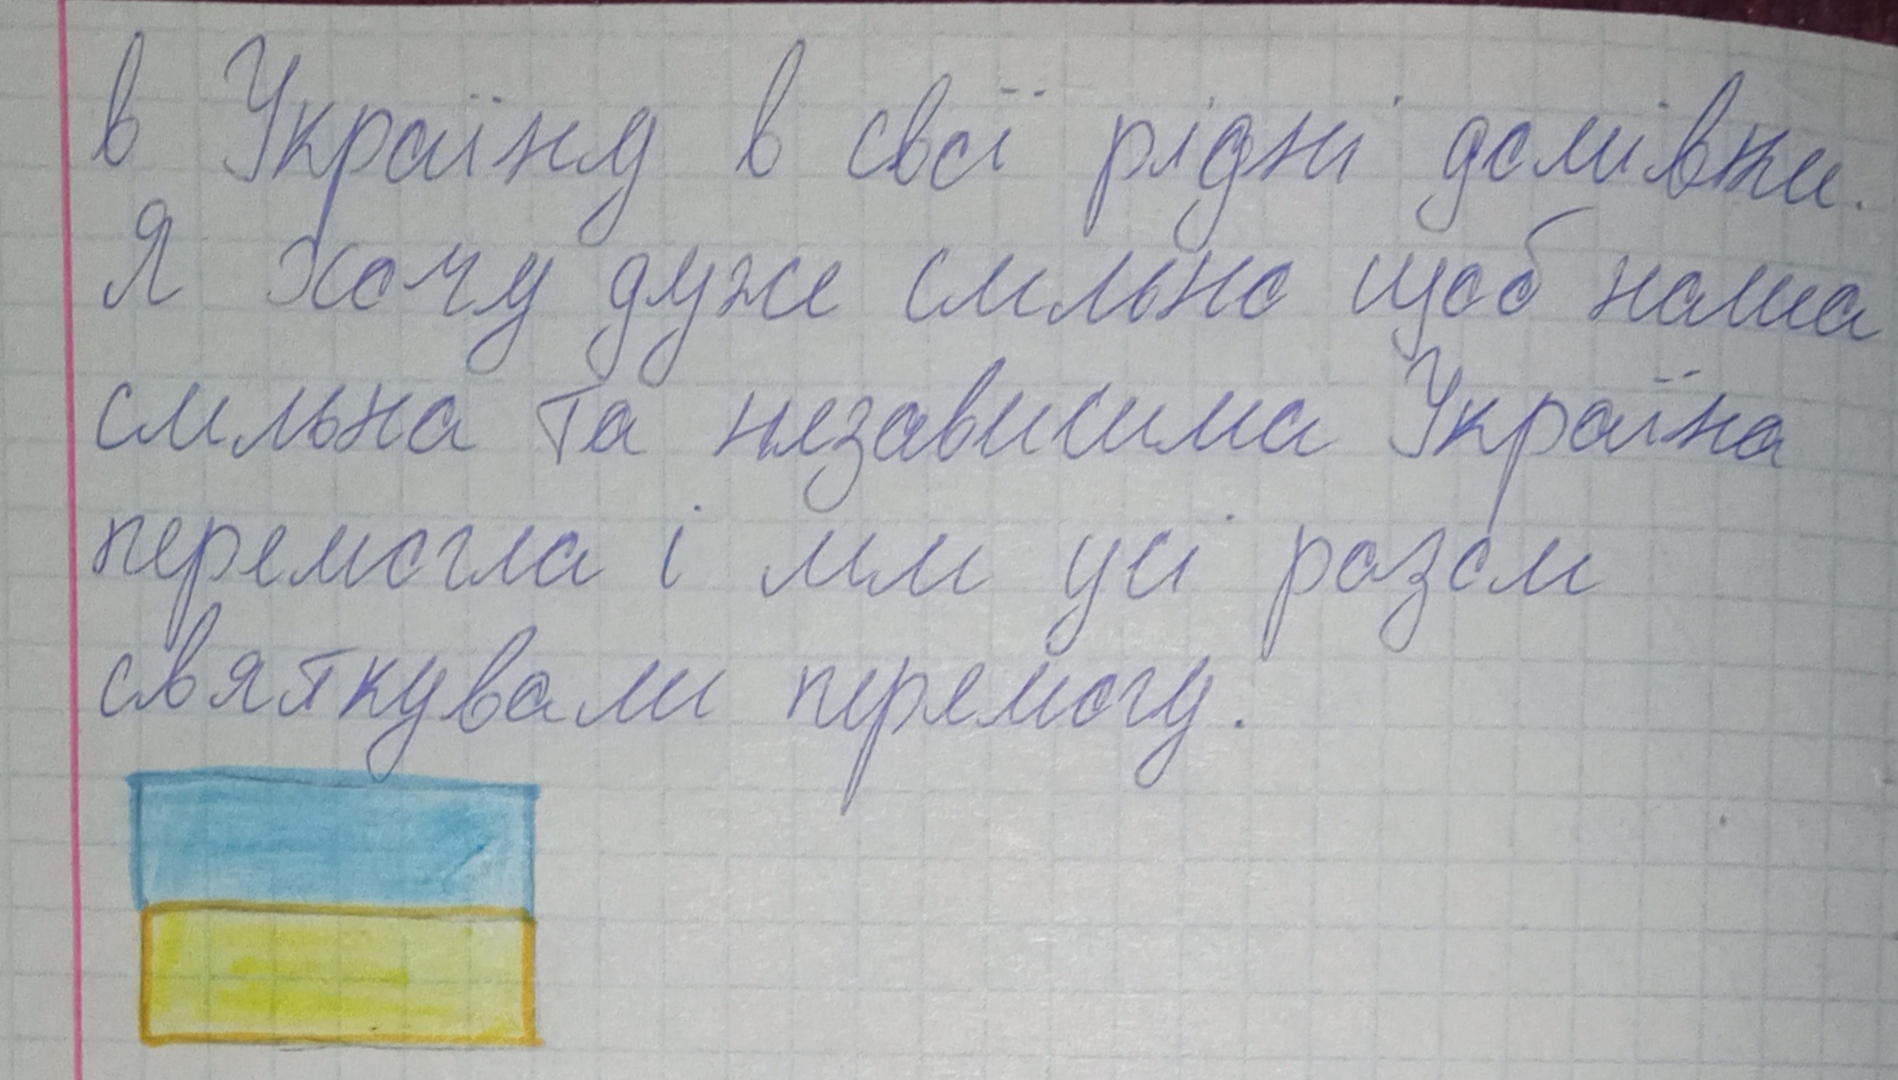 в Україну в свої рідні домівки.
Я хочу дуже сильно щоб наша
сильна та независима Україна
перемогла і ми усі разом
святкували перемогу.